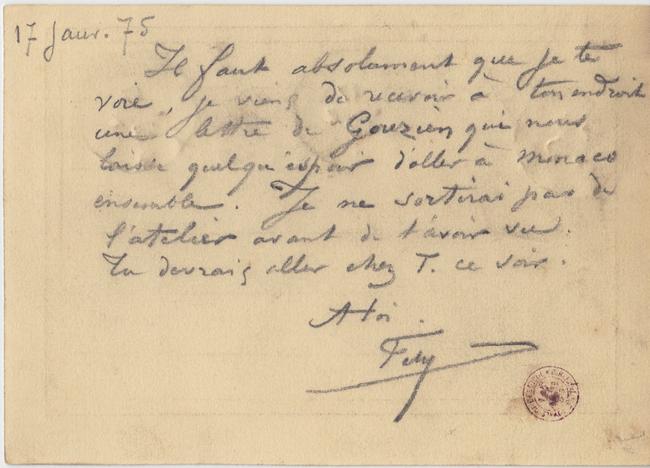 17 Janr. 75
Il faut absolument que je te
voie, je viens de recevoir à ton endroit
une lettre de Gouzien qui nous
laisse quelqu'espoir d'aller à Monaco
ensemble. Je ne sortirai pas de
l'atelier avant de t'avoir vu.
Tu devrais aller chez T. ce soir.
A toi.
Fély